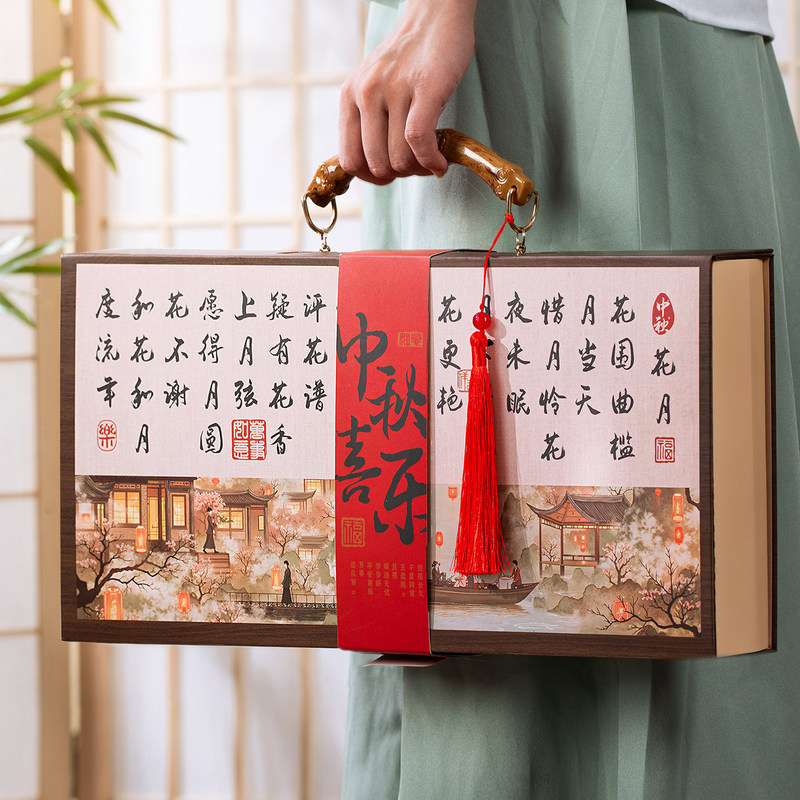 中秋
花月
福
花围曲槛
月当天
惜月怜花
夜未眠
月
花更艳
中秋
喜乐
福
评花谱
疑有花香
上月弦
萬事如意
愿得月圆
花不谢
和花和月
度流年
樂